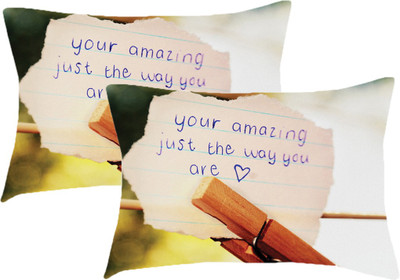 your amazing
just the way you
ar
your amazing
just the way you
are ♡